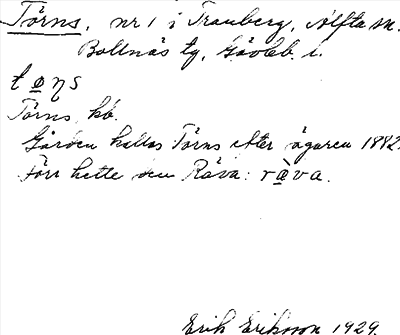 Törns, nr 1 i Tranberg, Alfta sn.
Bollnäs tg, Gävleb. l.
to̱ηs
Törns kb.
Gården kallas Törns efter ägaren 1882.
Förr hette den Råva: rà̱va.
Erik Eriksson 1929.